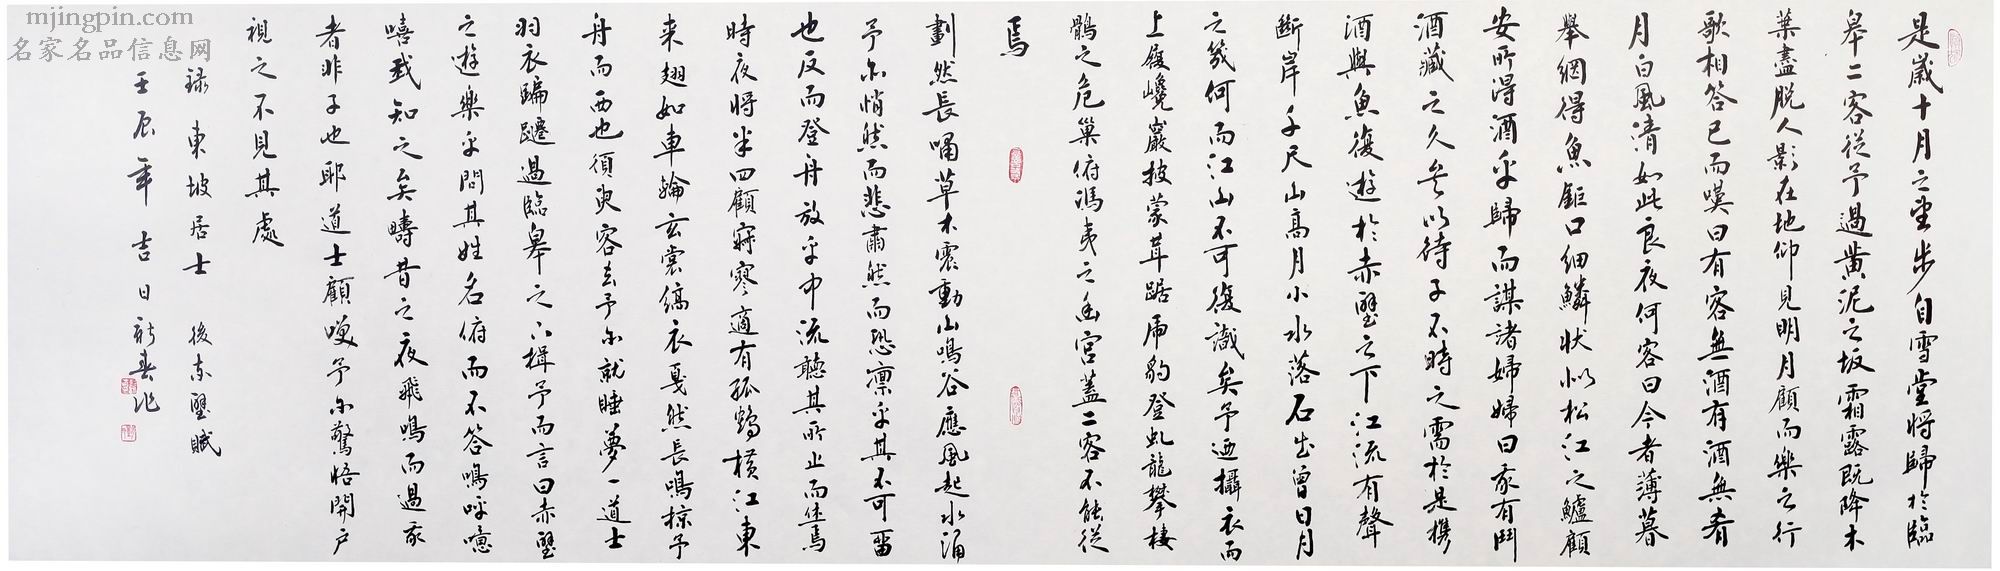 mjingpin.com
名家名品信息网
是歲十月之望步自雪堂將歸於臨
皋二客從予過黃泥之坂霜露既降木
葉盡脫人影在地仰見明月顧而樂之行
歌相答已而嘆曰有客無酒有酒無肴
月白風清如此良夜何客曰今者薄暮
舉網得魚鉅口細鱗狀似松江之鱸顧
安所得酒乎歸而謀諸婦婦曰我有鬥
酒藏之久矣以待子不時之需於是攜
酒與魚復遊於赤壁之下江流有聲
斷岸千尺山高月小水落石出曾日月
之幾何而江山不可復識矣予迺攝衣而
上履巉巖披蒙茸踞虎豹登虬龍攀棲
鶻之危巢俯馮夷之幽宮蓋二客不能從
焉
劃然長嘯草木震動山鳴谷應風起水涌
予亦悄然而悲肅然而恐凛乎其不可留
也反而登舟放乎中流聽其所止而休焉
時夜將半四顧寂寥適有孤鶴橫江東
来翅如車輪玄裳縞衣戛然長鳴掠予
舟而西也須臾客去予亦就睡夢一道士
羽衣蹁躚過臨皋之下揖予而言曰赤壁
之遊樂乎問其姓名俯而不答嗚呼噫
嘻我知之矣疇昔之夜飛鳴而過我
者非子也耶道士顧笑予亦驚悟開戶
視之不見其處
録東坡居士 後赤壁賦
壬辰年吉日新春作